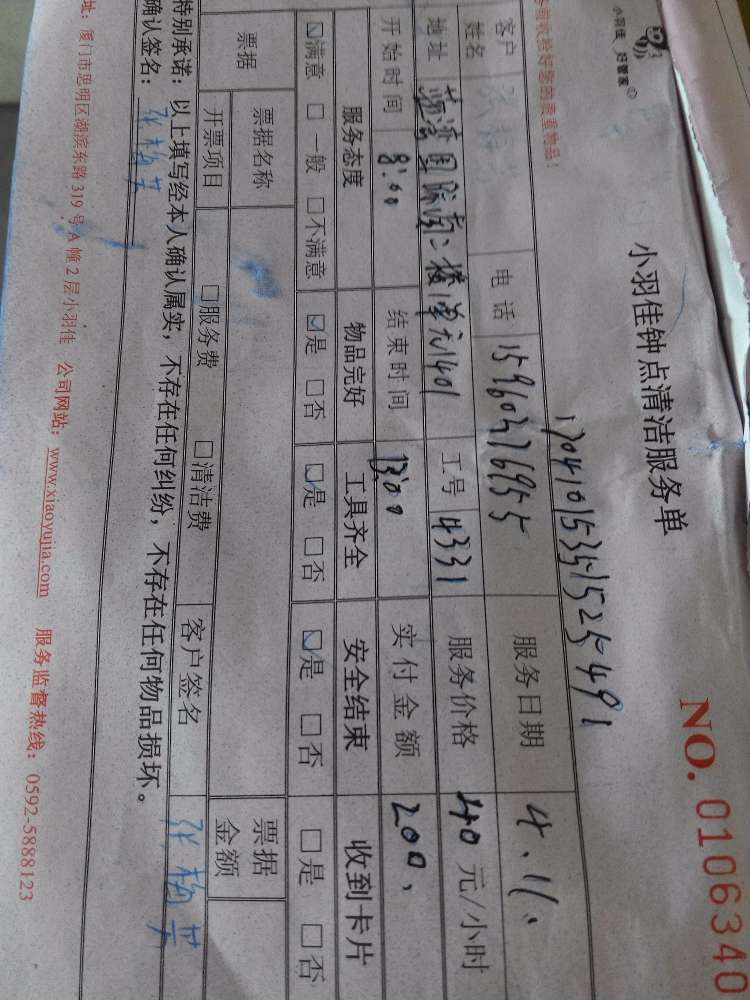 小羽佳 好管家
小羽佳钟点清洁服务单
NO. 0106340
收拾好您的贵重物品！
客户姓名 电话 15960376955 服务日期 4.11.
地址 国际 二楼 单元1401 工号 4331 服务价格 40 元/小时
开始时间 8:00 结束时间 13:00 实付金额 200.
服务态度 物品完好 工具齐全 安全结束 收到卡片
☑满意 □一般 □不满意 ☑是 □否 ☑是 □否 ☑是 □否 □是 □否
票据 票据名称 票据金额
开票项目 □服务费 □清洁费 客户签名 张梅
特别承诺：以上填写经本人确认属实，不存在任何纠纷，不存在任何物品损坏。
确认签名：张梅
址：厦门市思明区湖滨东路 319 号 A 幢 2 层小羽佳 公司网站：www.xiaoyujia.com 服务监督热线：0592-5888123